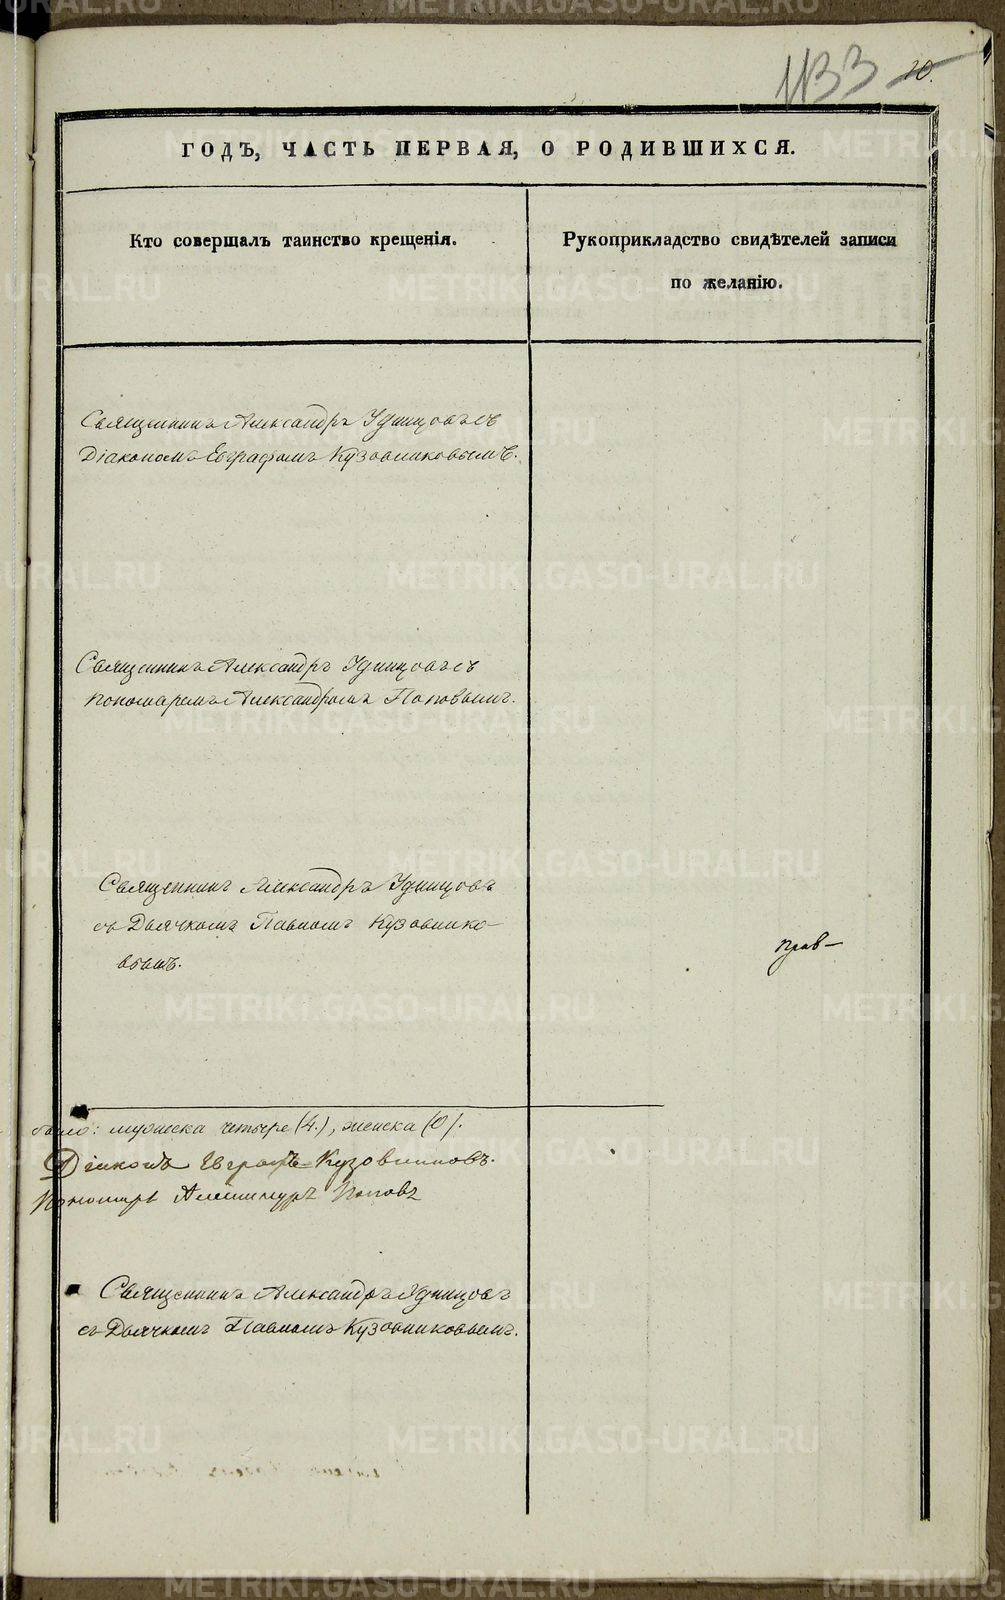 1133 20.
ГОДЪ, ЧАСТЬ ПЕРВАЯ, О РОДИВШИХСЯ.
Кто совершалъ таинство крещенія.
Рукоприкладство свидѣтелей записи
по желанію.
Священникъ Александръ Удинцовъ съ
Діакономъ Евграфомъ Кузовниковымъ.
Священникъ Александръ Удинцовъ съ
пономаремъ Александромъ Поповымъ.
Священникъ Александръ Удинцовъ
съ Дьячкомъ Павломъ Кузовнико-
вымъ.
мужеска четыре (4.), женска (0).
Діаконъ Евграфъ Кузовниковъ.
Пономарь Александръ Поповъ
Священникъ Александръ Удинцовъ
съ Дьячкомъ Павломъ Кузовниковымъ.
METRIKI.GASO-URAL.RU